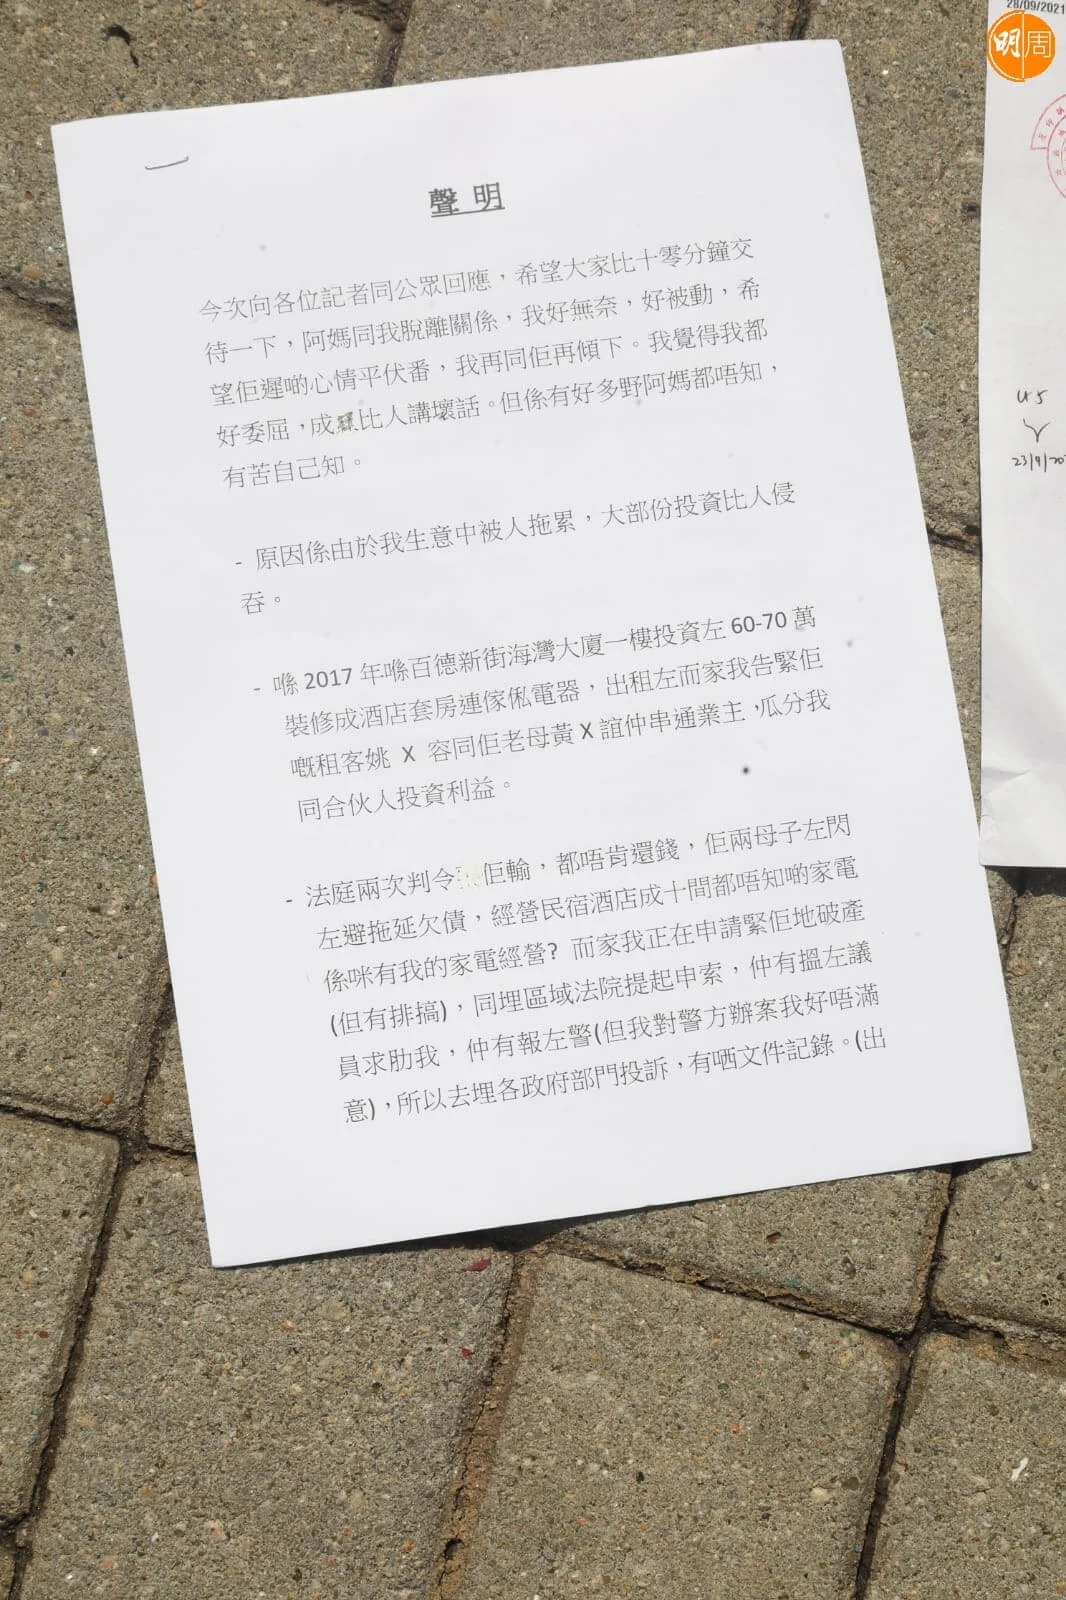 聲明
今次向各位記者同公眾回應，希望大家比十零分鐘交
待一下，阿媽同我脫離關係，我好無奈，好被動，希
望佢遲啲心情平伏番，我再同佢再傾下。我覺得我都
好委屈，成比人講壞話。但係有好多野阿媽都唔知，
有苦自己知。
- 原因係由於我生意中被人拖累，大部份投資比人侵
吞。
- 喺 2017 年喺百德新街海灣大廈一樓投資左 60-70 萬
裝修成酒店套房連傢俬電器，出租左而家我告緊佢
嘅租客姚 X 容同佢老母黃 X 誼仲串通業主，瓜分我
同合伙人投資利益。
- 法庭兩次判令佢輸，都唔肯還錢，佢兩母子左閃
左避拖延欠債，經營民宿酒店成十間都唔知啲家電
係咪有我的家電經營? 而家我正在申請緊佢地破產
(但有排搞)，同埋區域法院提起申索，仲有搵左議
員求肋我，仲有報左警(但我對警方辦案我好唔滿
意)，所以去埋各政府部門投訴，有哂文件記錄。(出
28/09/2021
明周
23/9/20